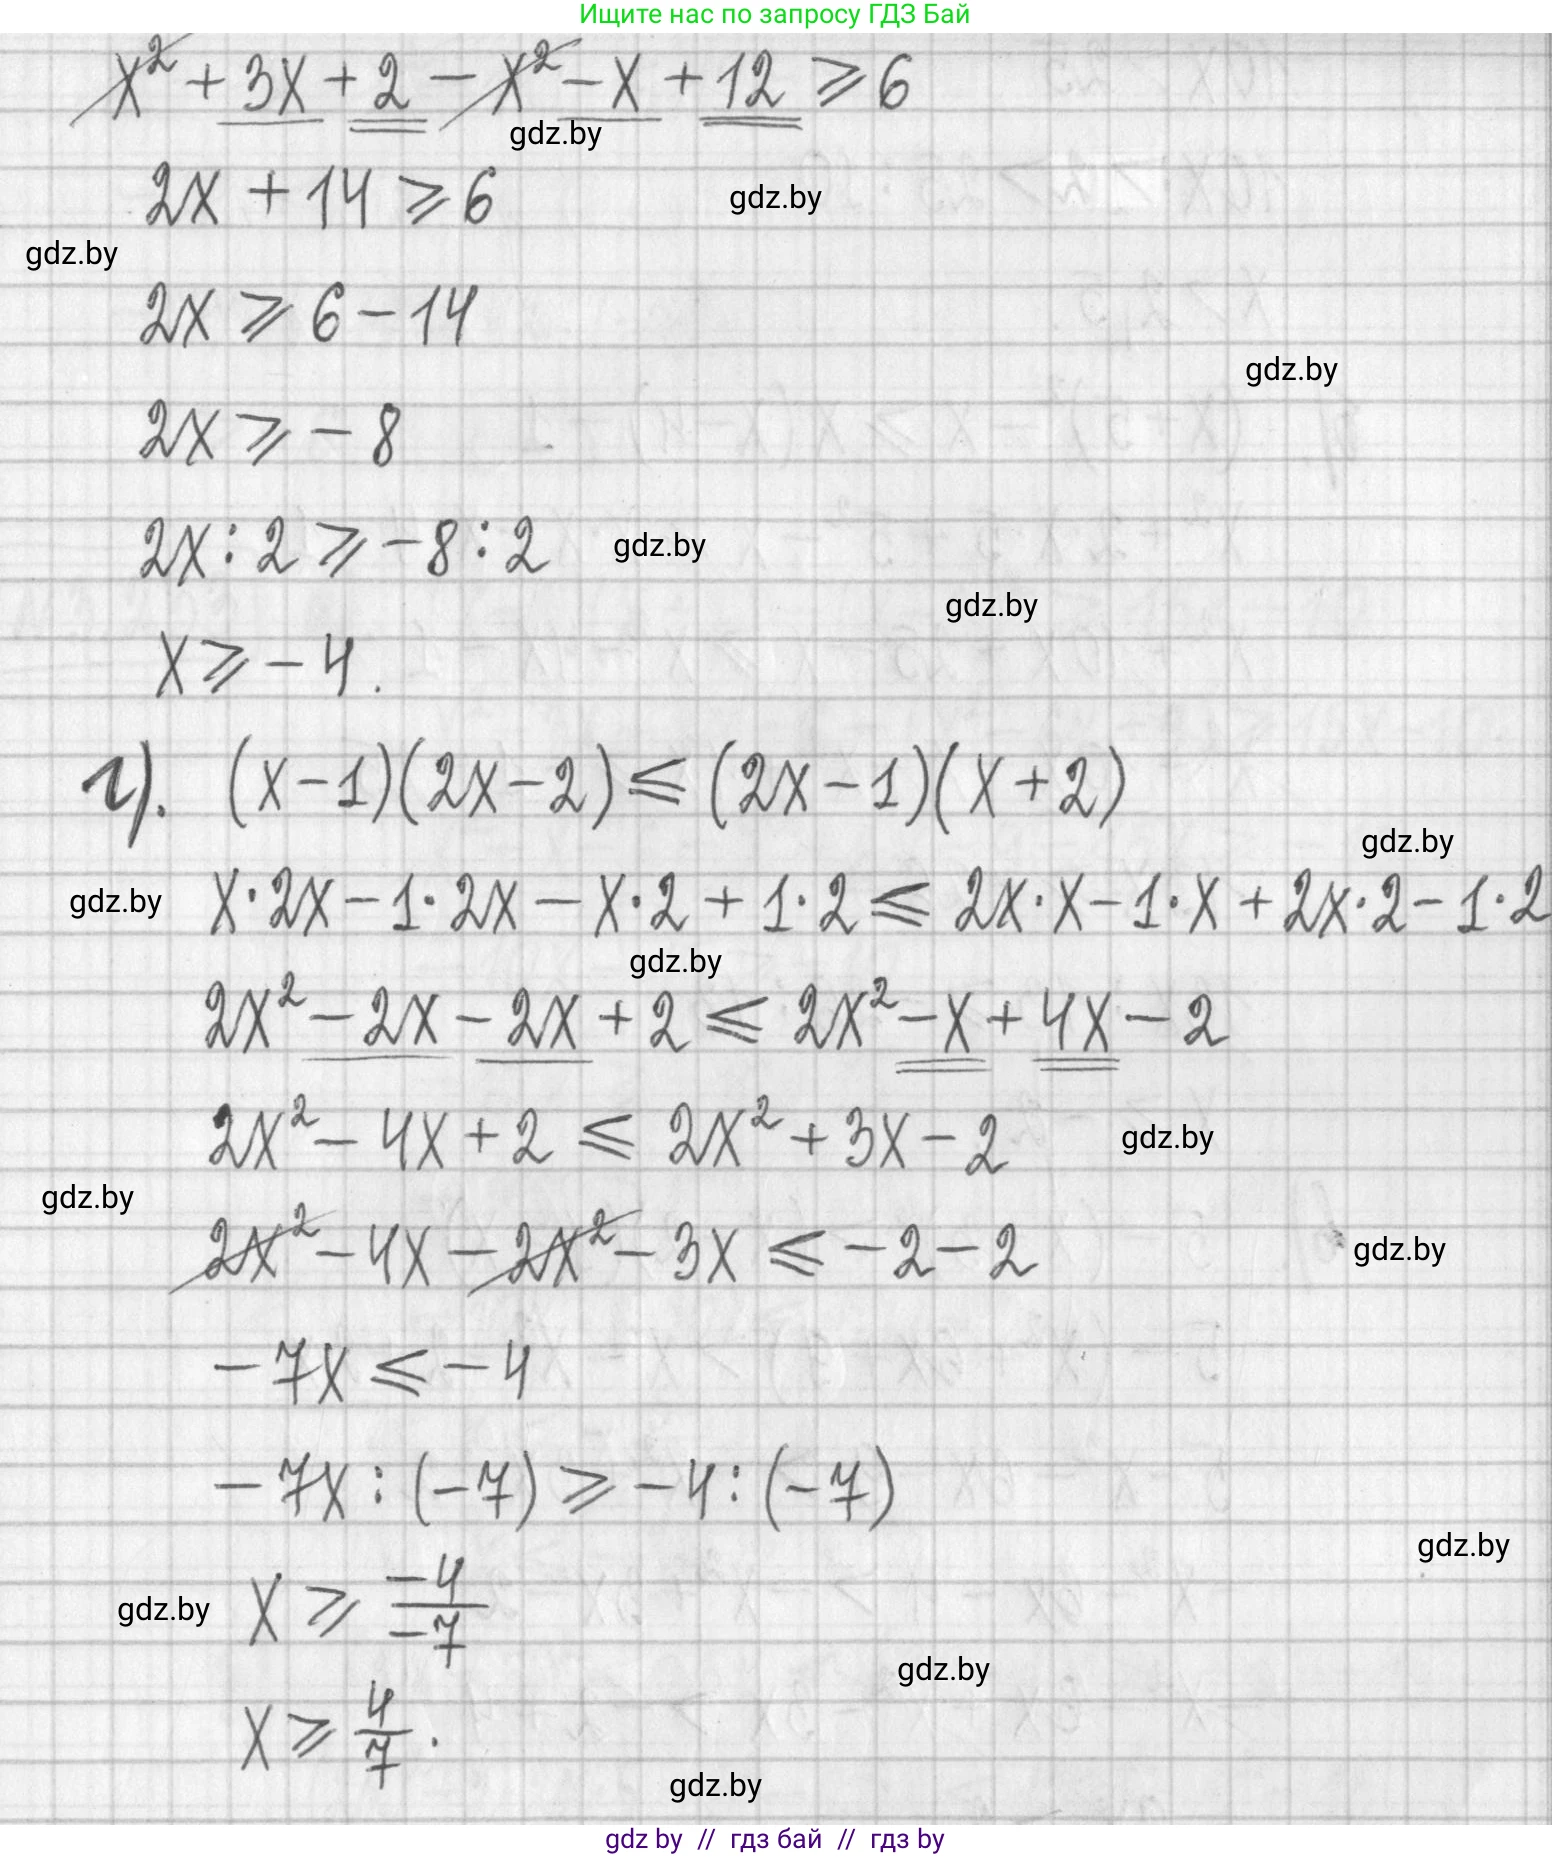 Ищите нас по запросу ГДЗ Бай
x² + 3x + 2 - x² - x + 12 ⩾ 6
gdz.by
2x + 14 ⩾ 6
gdz.by
gdz.by
2x ⩾ 6 - 14
gdz.by
2x ⩾ - 8
2x : 2 ⩾ - 8 : 2
gdz.by
gdz.by
x ⩾ - 4.
г). (x - 1)(2x - 2) ⩽ (2x - 1)(x + 2)
gdz.by
gdz.by
x · 2x - 1 · 2x - x · 2 + 1 · 2 ⩽ 2x · x - 1 · x + 2x · 2 - 1 · 2
gdz.by
2x² - 2x - 2x + 2 ⩽ 2x² - x + 4x - 2
2x² - 4x + 2 ⩽ 2x² + 3x - 2
gdz.by
gdz.by
2x² - 4x - 2x² - 3x ⩽ - 2 - 2
gdz.by
- 7x ⩽ - 4
- 7x : (-7) ⩾ - 4 : (-7)
gdz.by
gdz.by
x ⩾ -4/-7
gdz.by
x ⩾ 4/7.
gdz.by
gdz by // гдз бай // гдз by